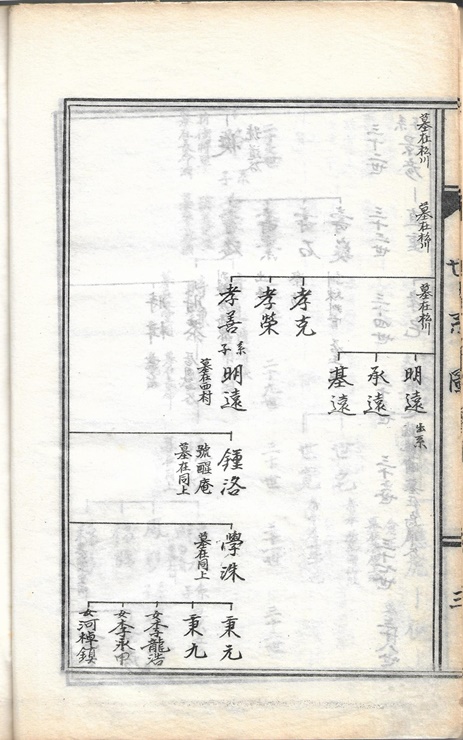 墓在松川
墓在松川
墓在松川
明遠
出系
承遠
基遠
孝克
孝榮
孝善
系子
明遠
墓在西村
鍾洛
號醒庵
墓在同上
學洙
墓在同上
秉元
秉九
女李龍浩
女李永中
女河
鎮
世系圖
三